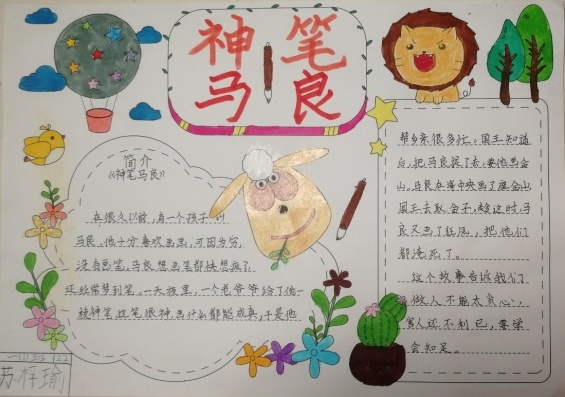 神笔
马良
简介
《神笔马良》
在很久以前,有一个孩子叫
马良,他十分喜欢画画,可因为穷,
没有画笔,马良想画笔都快想疯了
还经常梦到笔。一天夜里,一个老爷爷给了他一
枝神笔这笔很神,画什么都能成真,于是他
帮乡亲很多忙。国王知道
后,把马良捉了去,要他画金
山,马良在海中央画了座金山
国王去取金子,趁这时,马
良又画了狂风,把他们
都淹死了。
这个故事告诉我们
做人不能太贪心,
害人还不利己,要学
会知足。
苏梓瑜